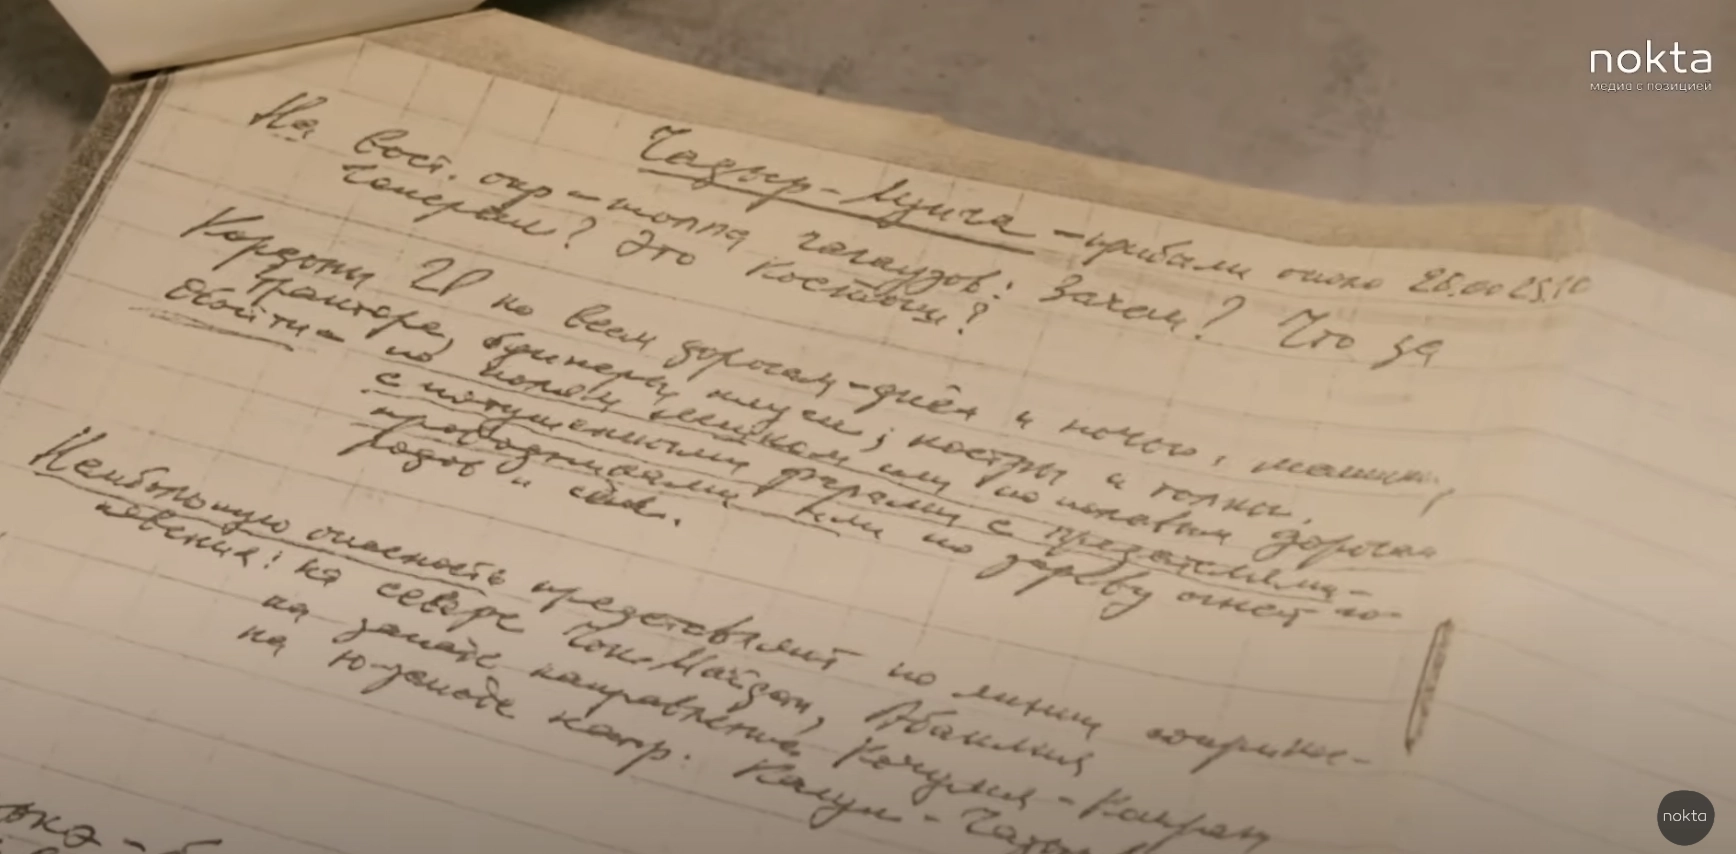 nokta
медиа с позицией
Чадыр-Лунга - прибыли около 26.00 25.10
На вост. окр - толпа гагаузов: Зачем? Что за
галереи? Это Костющ?
Кордоны 2Р по всем дорогам - днём и ночью, машины,
трактора, бункеры, плуги; костры и толпы.
Обойти - по полям пешком или по полевым дорогам
с потушенными фарами с предателями-
проводниками или по зареву огней го-
родов и сёл.
Наибольшую опасность представляют по линии соприкос-
новения: на севере Чок-Майдан, Абаклия
на западе направление Кочулия - Кайраклия
на ю-западе напр. Кагул -
nokta